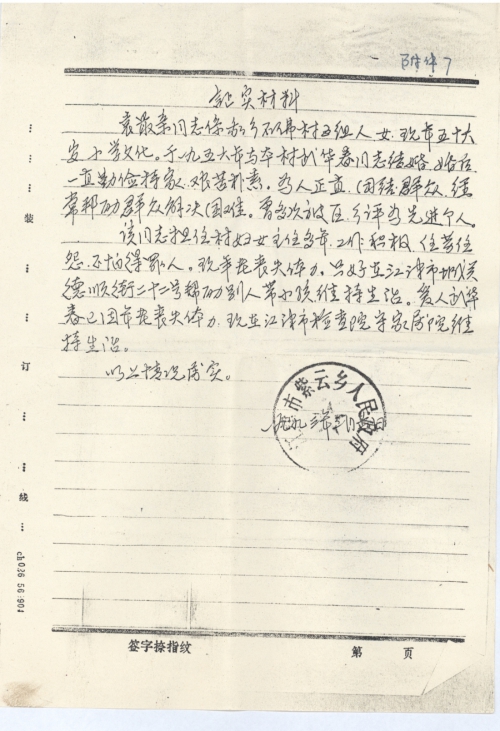 附件7
记实材料
袁淑素同志系我乡石佛村五组人,女,现年五十六
岁,小学文化。于一九五六年与本村武华春同志结婚,婚后
一直勤俭持家,艰苦朴素。为人正直,团结群众,经
常帮助群众解决困难。曾多次被区、乡评为先进个人。
该同志担任村妇女主任多年,工作积极,任劳任
怨,不怕得罪人。现年老丧失体力,只好在江津市城关
德顺街二十二号帮助别人带小孩维持生活。爱人武华
春已因年老丧失体力,现在江津市检查院守家属院维
持生活。
以上情况属实。
市紫云乡人民政府
装
订
线
ch026 56.904
签字捺指纹
第 页